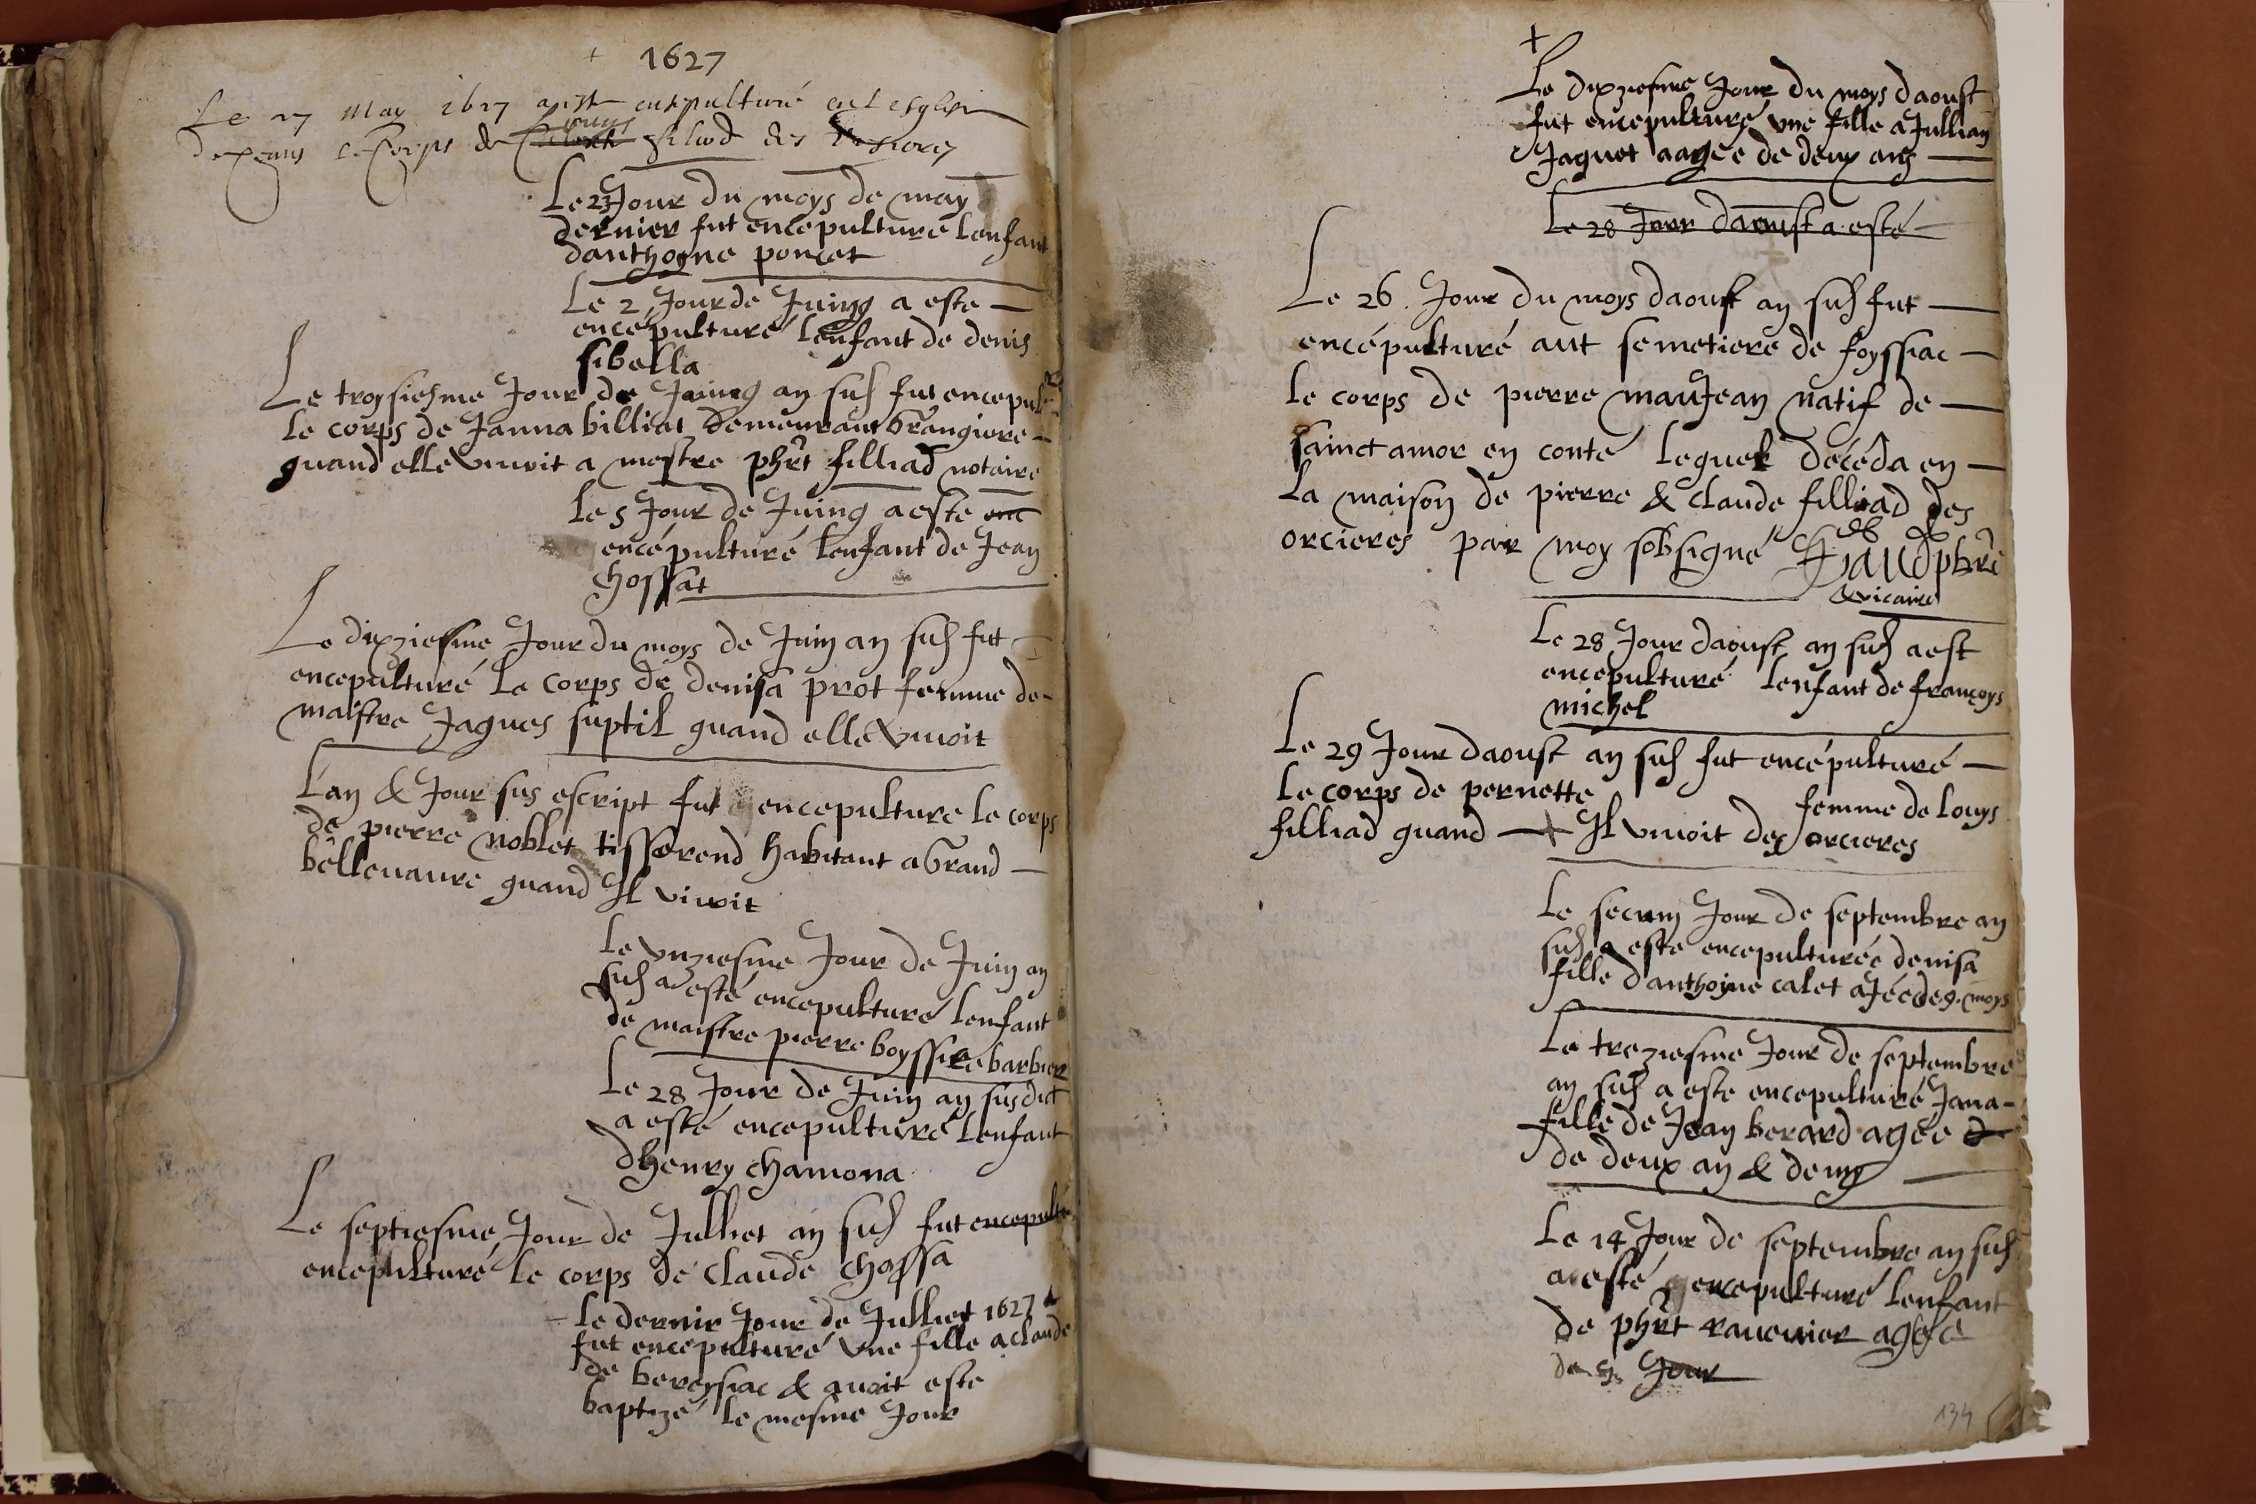 + 1627
Le 27 May 1627 a este ensepulturé en l esglise
le Corps de
Le 23 Jour du moys de may
dernier fut encepulturé lenfant
danthoyne poncet
Le 2 Jour de Juing a este —
encépulturé lenfant de denis
sibella
Le troysiesme Jour de Juing an sus fut encepul
le corps de Janna billiat demeurant Grangiere —
quand elle vivoit a mestre phrt filliad notaire
Le 5 Jour de Juing a este enc
encépulturé lenfant de Jean
Chossat
Le dixziesme Jour du moys de Juin an sus fut —
encepulturé le corps de denisa prot femme de —
maistre Jaques suptil quand elle vivoit
Lan & Jour sus escript fut encepulture le corps
de pierre noblet tisserend habitant a Grand —
bellevavre quand Il vivoit
Le unziesme Jour de Juin an
sus a esté encepulturé lenfant
de maistre pierre boyssire barbier
Le 28 Jour de Juin an susdict
a esté encepulturé lenfant
dhenry chamona
Le septiesme Jour de Julliet an sus fut encepultu
encepulturé le corps de Claude Chossa
Le dernir Jour de Julliet 1627
fut encepulturé une fille a claude
de bereysiac & avoit este
baptizé le mesme Jour
+
Le dixziesme Jour du moys daoust
fut encepulturé une fille a Jullian
Jaquet aagée de deux ans —
Le 28 Jour daoust a esté —
Le 26 Jour du moys daoust an sus fut —
encépulturé aut semetiere de foyssiac —
le corps de pierre maujean natif de —
sainct amor en conté lequel décéda en —
la maison de pierre & claude filliad des
orcieres par moy sobsigné pbre
& vicaire
Le 28 Jour daoust an sus a est
encepulturé lenfant de françoys
michel
Le 29 Jour daoust an sus fut encépulturé —
le corps de pernette femme de louys
filliad quand — Il vivoit dex orcieres
Le secum Jour de septembre an
sus a este encepulturée denisa
fille danthoyne calet ajéé de .9. moys
Le treziesme Jour de septembre
an sus a este encepulturé Jana —
fille de Jean berard agée d
de deux an & demy —
Le 14 Jour de septembre an sus
a esté encepulturé lenfant
de phrt ravenier agéé
de Jour
134